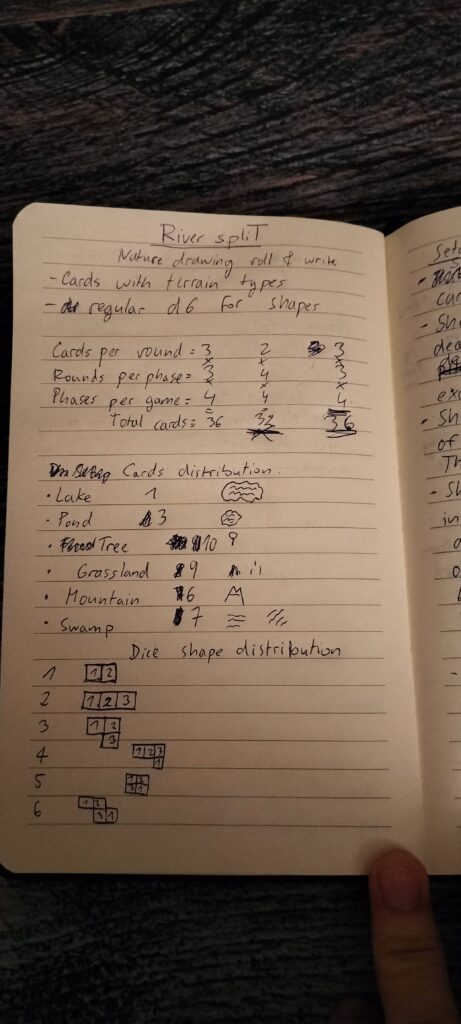 River spliT
Nature drawing roll & write
- Cards with terrain types
- regular d6 For shapes
Cards per round = 3 2 3
x x x
Rounds per phase = 3 4 3
x x x
Phases per game = 4 4 4
= = =
Total cards = 36 32 36
Cards distribution:
• Lake 1
• Pond 3
• Tree 10
• Grassland 9
• Mountain 6
• Swamp 7
Dice shape distribution
1 1 2
2 1 2 3
3 1 2
3
4 1 2 3
1
5 1 2
3 1
6 1 2
3 1
Setu
car
- Sh
dea
exc
- Sh
of
Th
- Sh
in